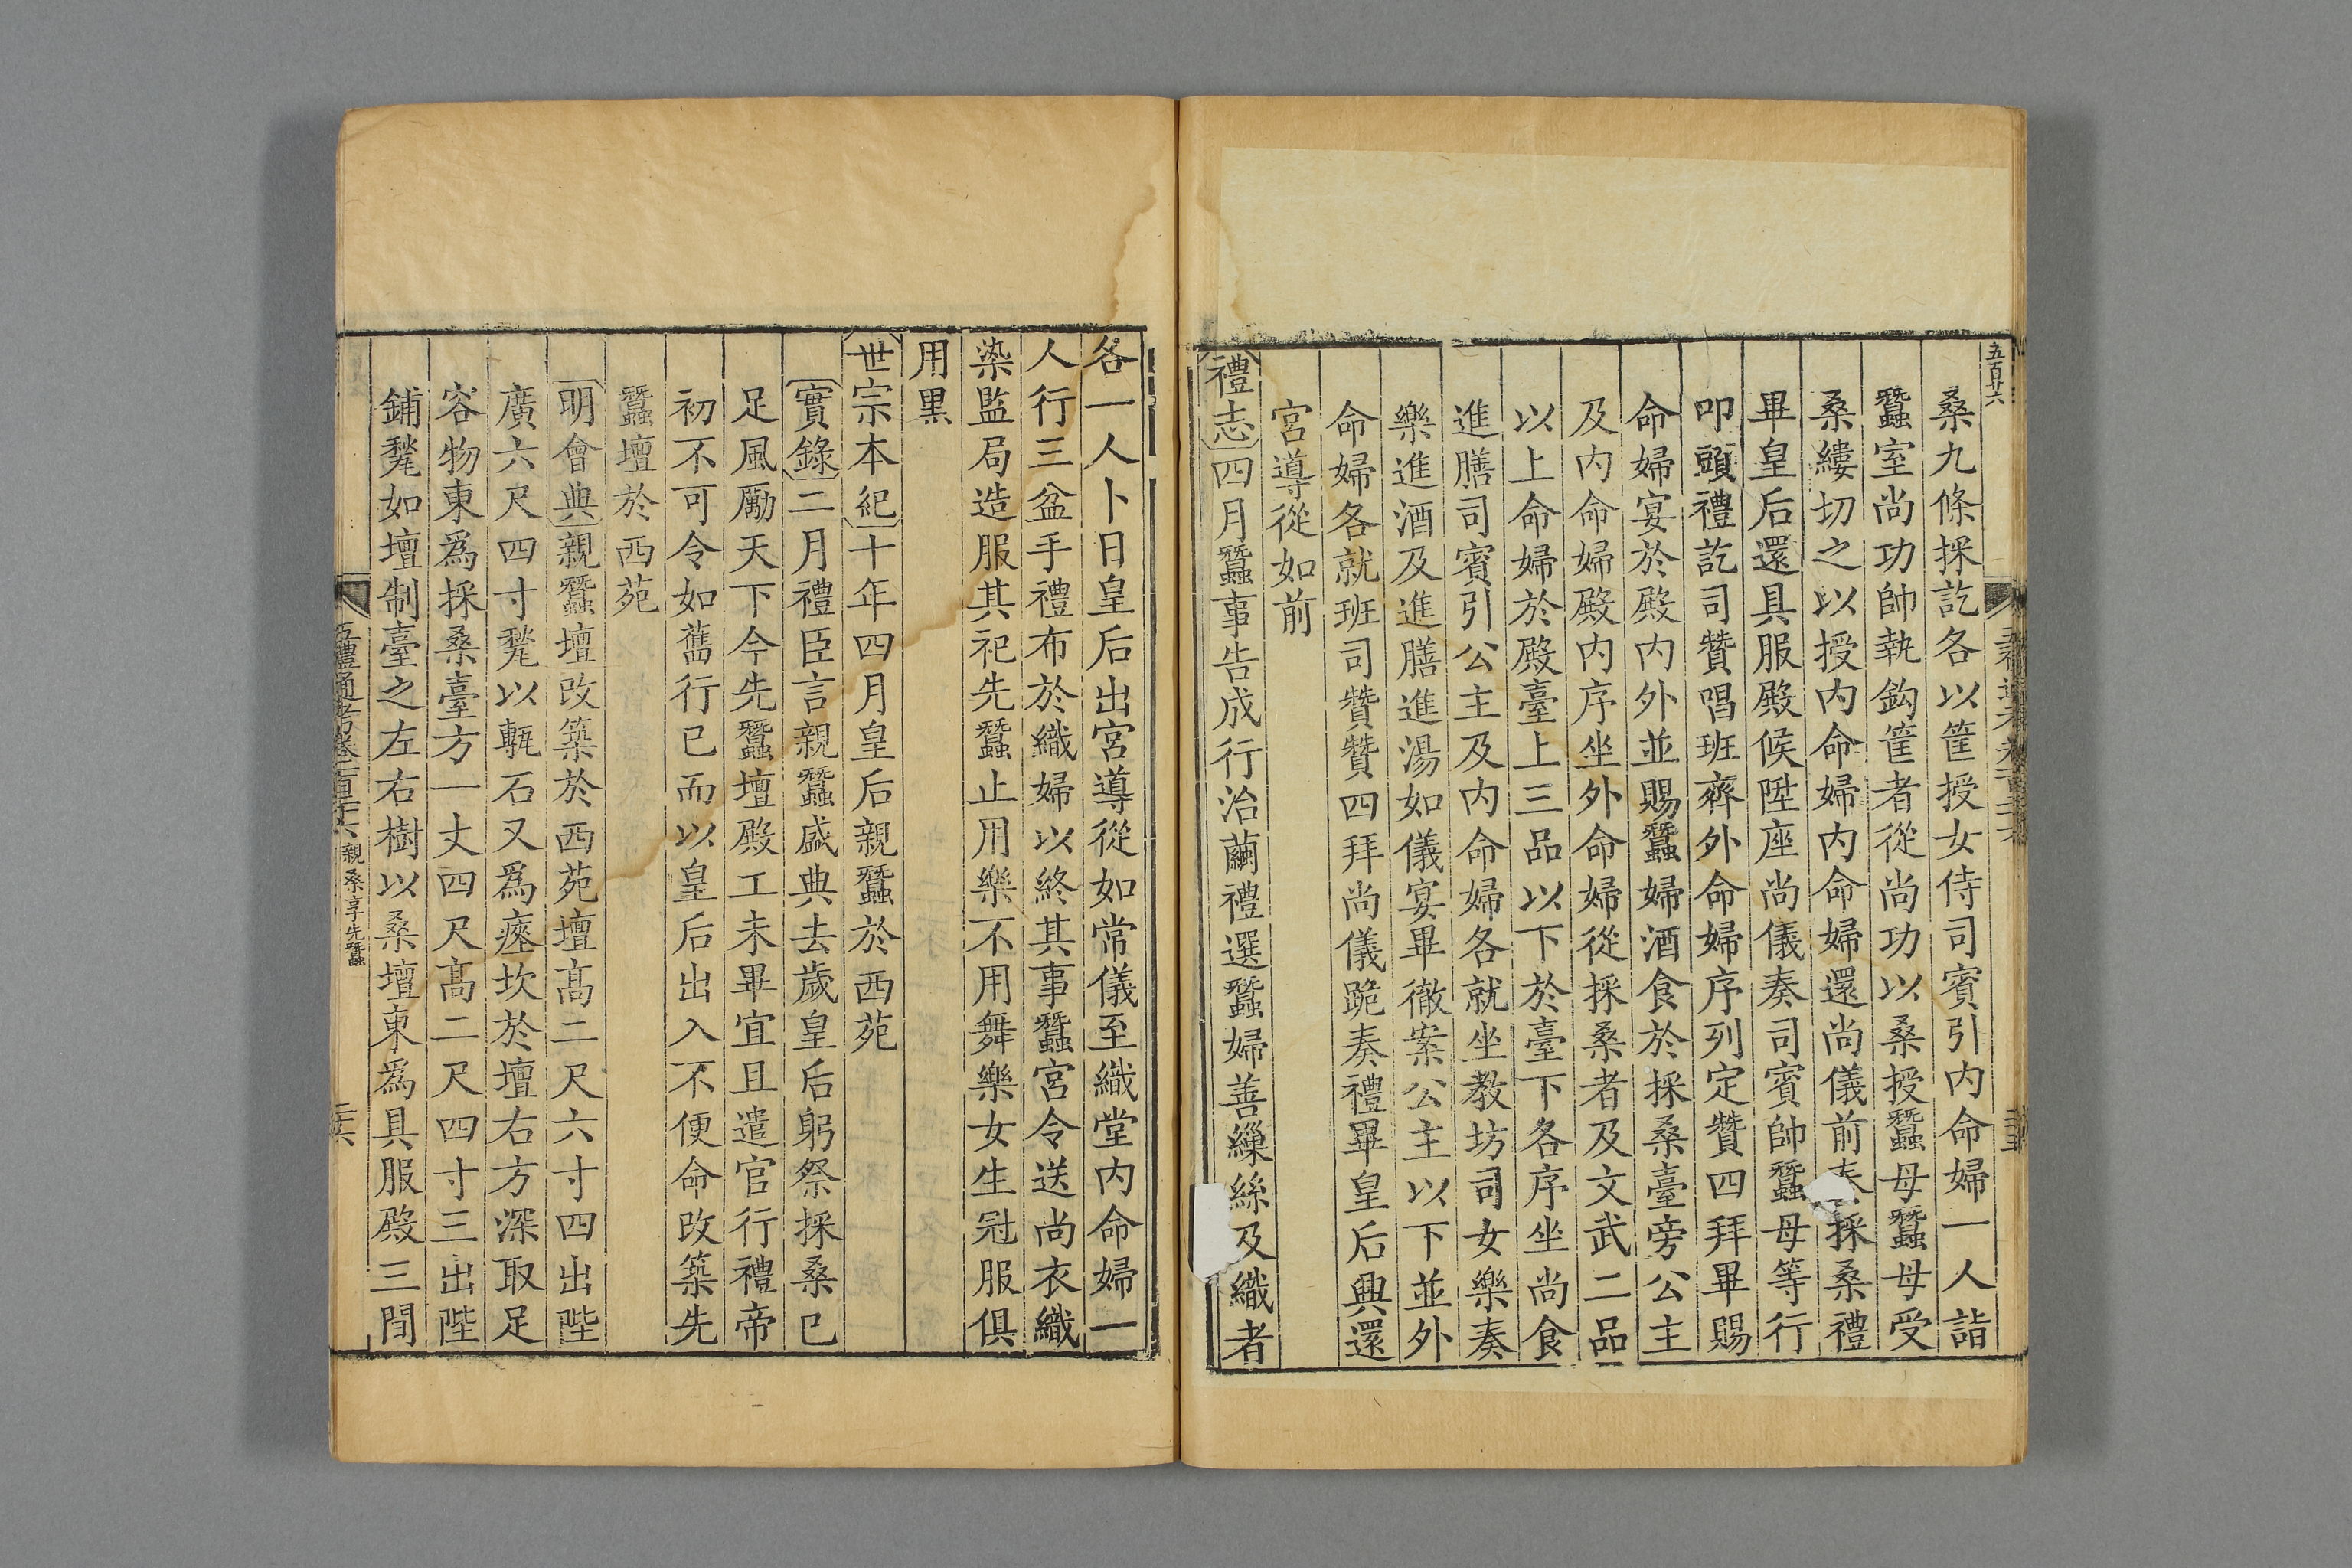 五百廿六
桑九條採訖各以筐授女侍司賓引内命婦一人詣
蠶室尚功帥執鈎筐者從尚功以桑授蠶母蠶母受
桑縷切之以授内命婦内命婦還尚儀前奏採桑禮
畢皇后還具服殿候陞座尚儀奏司賓帥蠶母等行
叩頭禮訖司贊唱班齊外命婦序列定贊四拜畢賜
命婦宴於殿内外並賜蠶婦酒食於採桑臺旁公主
及内命婦殿内序坐外命婦從採桑者及文武二品
以上命婦於殿臺上三品以下於臺下各序坐尚食
進膳司賓引公主及内命婦各就坐教坊司女樂奏
樂進酒及進膳進湯如儀宴畢徹案公主以下並外
命婦各就班司贊贊四拜尚儀跪奏禮畢皇后興還
宮導從如前
禮志四月蠶事告成行治繭禮選蠶婦善繅絲及織者
各一人卜日皇后出宮導從如常儀至織堂内命婦一
人行三盆手禮布於織婦以終其事蠶宮令送尚衣織
染監局造服其祀先蠶止用樂不用舞樂女生冠服俱
用黒
世宗本紀十年四月皇后親蠶於西苑
實錄二月禮臣言親蠶盛典去歲皇后躬祭採桑已
足風勵天下今先蠶壇殿工未畢宜且遣官行禮帝
初不可令如舊行已而以皇后出入不便命改築先
蠶壇於西苑
明會典親蠶壇改築於西苑壇髙二尺六寸四出陛
廣六尺四寸甃以甎石又爲瘞坎於壇右方深取足
容物東爲採桑臺方一丈四尺髙二尺四寸三出陛
鋪甃如壇制臺之左右樹以桑壇東爲具服殿三間
五禮通考卷一百二十六 親桑享先蠶 二十六